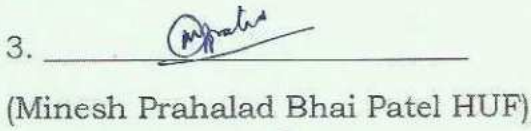 3.
(Minesh Prahalad Bhai Patel HUF)